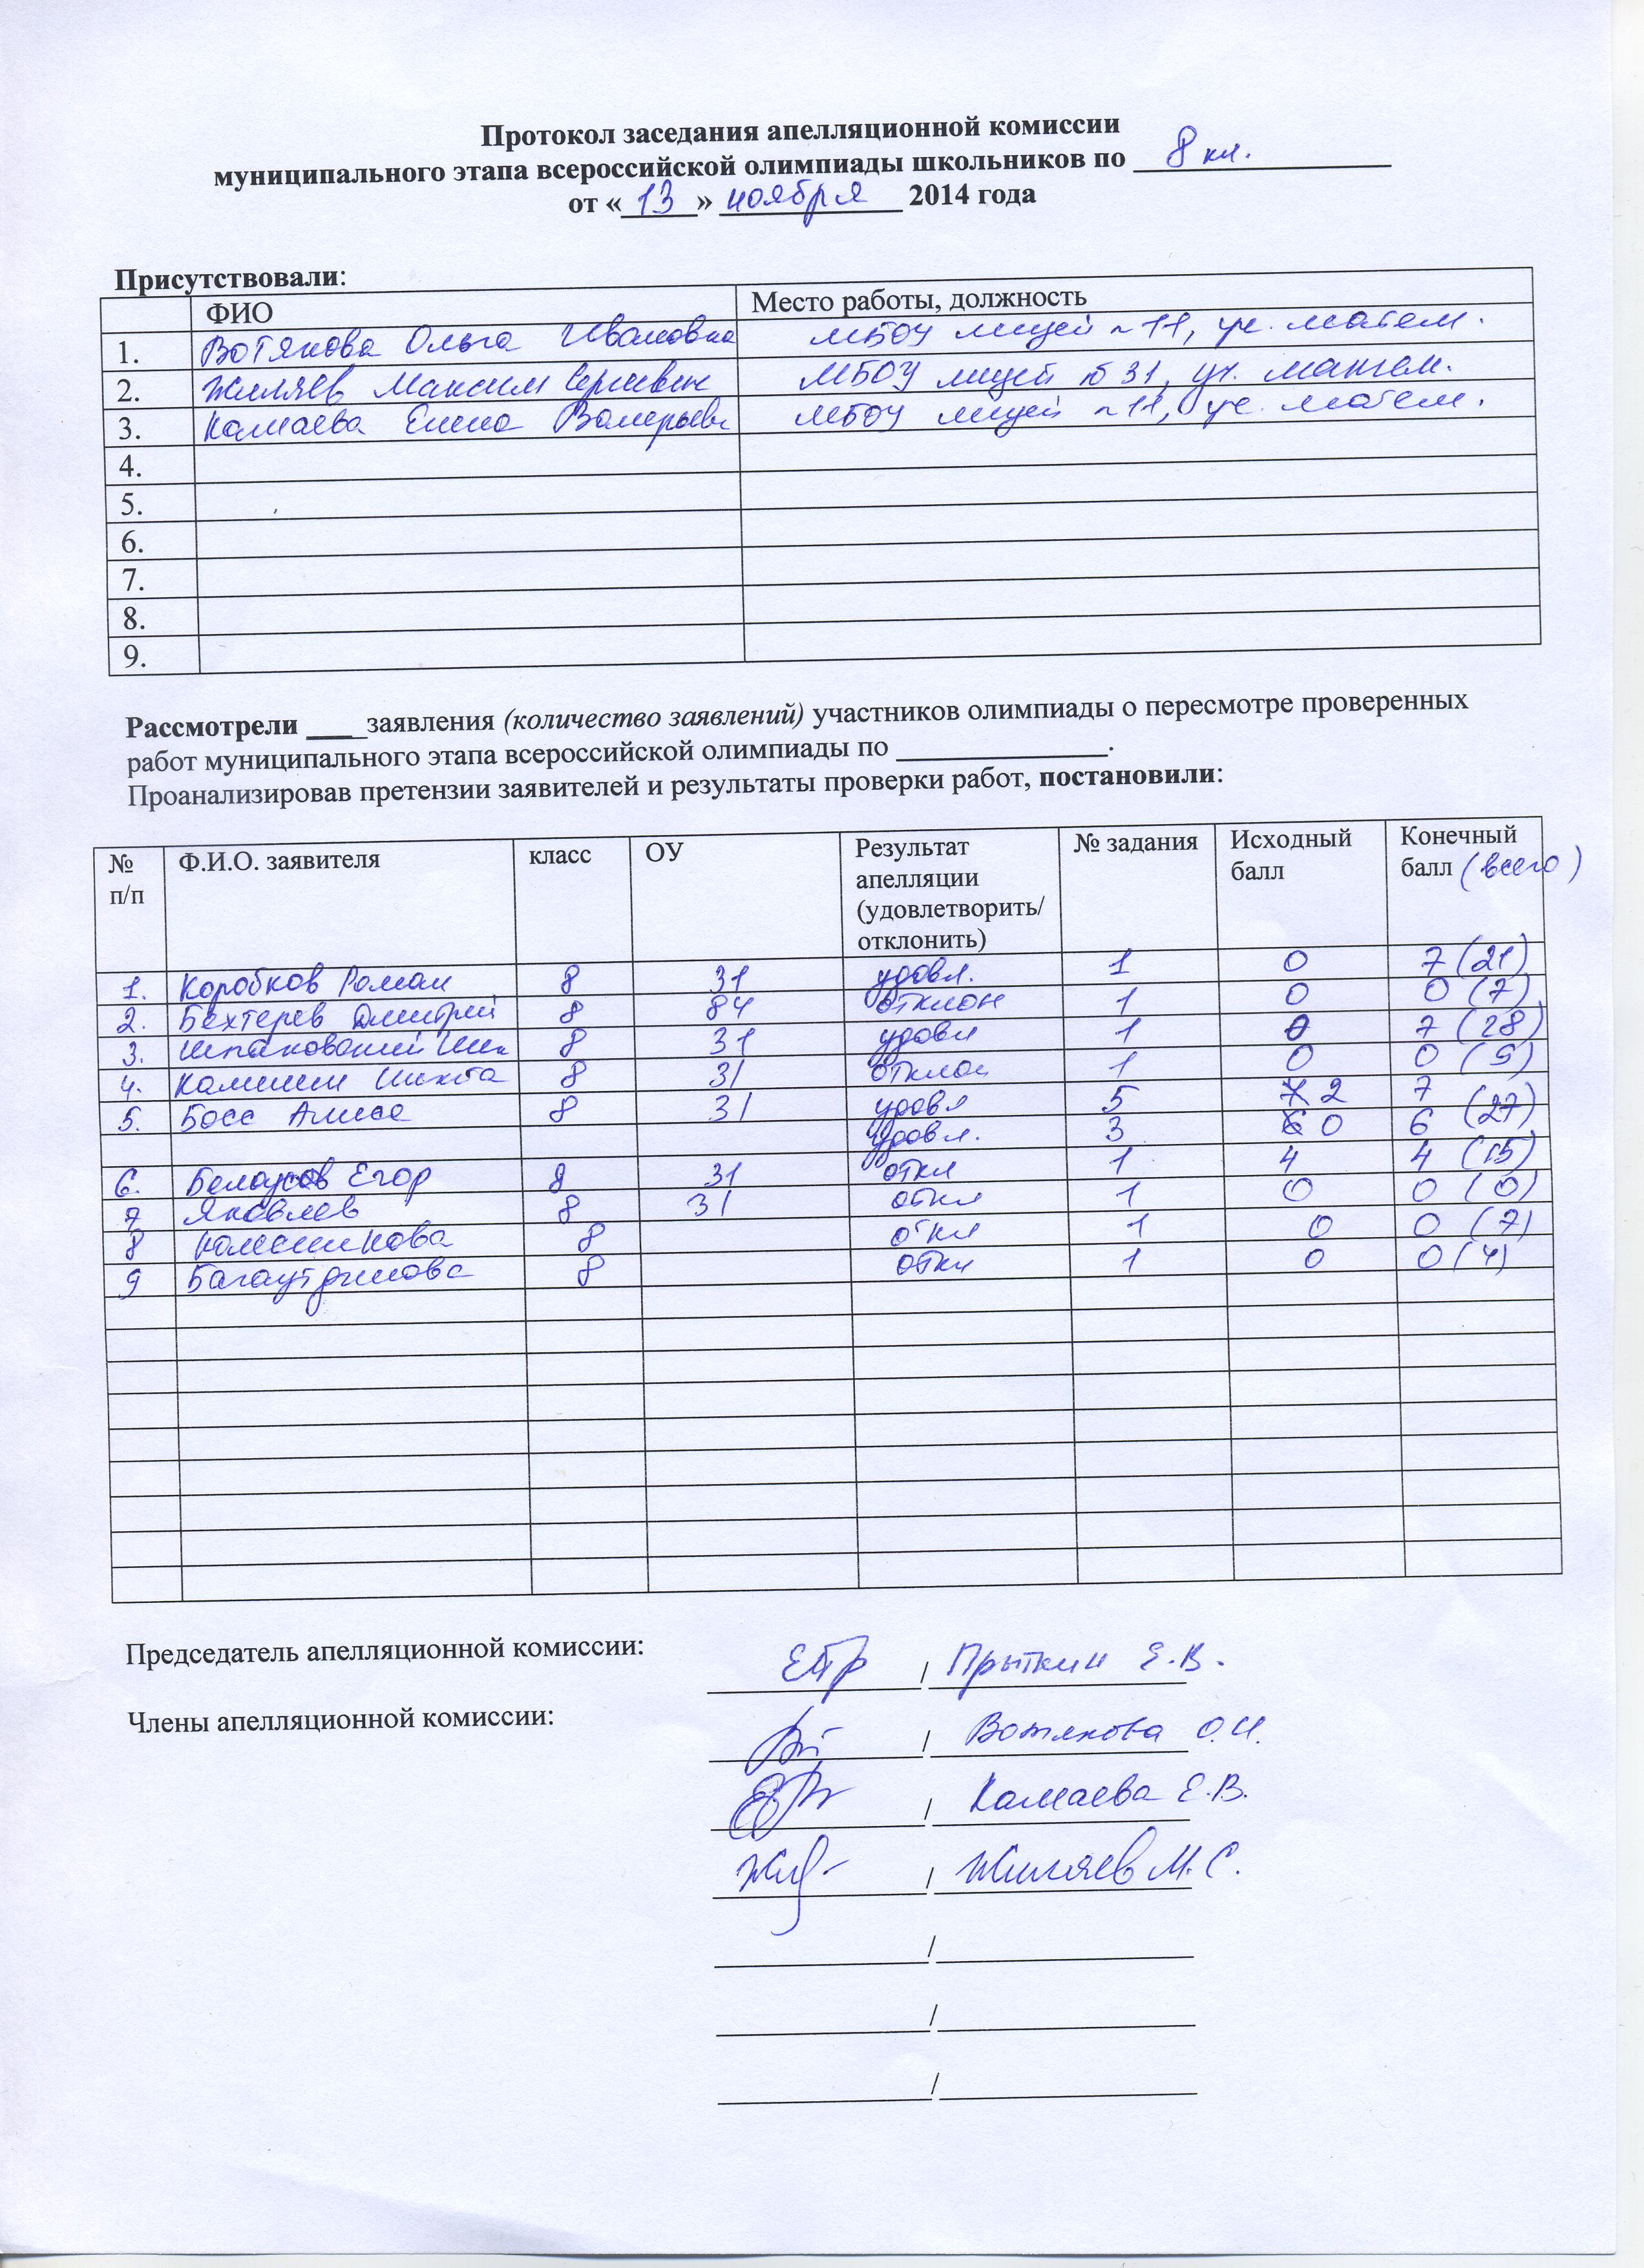 Протокол заседания апелляционной комиссии
муниципального этапа всероссийской олимпиады школьников по 8 кл.
от «13» ноября 2014 года
Присутствовали:
ФИО Место работы, должность
1. Вотякова Ольга Ивановна МБОУ лицей №11, уч. матем.
2. Жиляев Максим Сергеевич МБОУ лицей №31, уч. матем.
3. Камаева Елена Валерьевн МБОУ лицей №11, уч. матем.
4.
5.
6.
7.
8.
9.
Рассмотрели ____заявления (количество заявлений) участников олимпиады о пересмотре проверенных
работ муниципального этапа всероссийской олимпиады по ______________.
Проанализировав претензии заявителей и результаты проверки работ, постановили:
№ п/п Ф.И.О. заявителя класс ОУ Результат апелляции (удовлетворить/ отклонить) № задания Исходный балл Конечный балл (всего)
1. Коробков Роман 8 31 удовл. 1 0 7 (21)
2. Бехтерев Дмитрий 8 84 отклон 1 0 0 (7)
3. 8 31 удовл 1 0 7 (28)
4. Никита 8 31 отклон 1 0 0 (9)
5. Босс Алиса 8 31 удовл 5 2 7 (27)
удовл. 3 0 6
6. Белоусов Егор 8 31 откл 1 4 4 (15)
7 Яковлев 8 31 откл 1 0 0 (0)
8 Колесникова 8 откл 1 0 0 (7)
9 Багаутдинова 8 откл 1 0 0 (4)
Председатель апелляционной комиссии: / Прыткин Е.В.
Члены апелляционной комиссии: / Вотякова О.И.
/ Камаева Е.В.
/ Жиляев М.С.
/
/
/